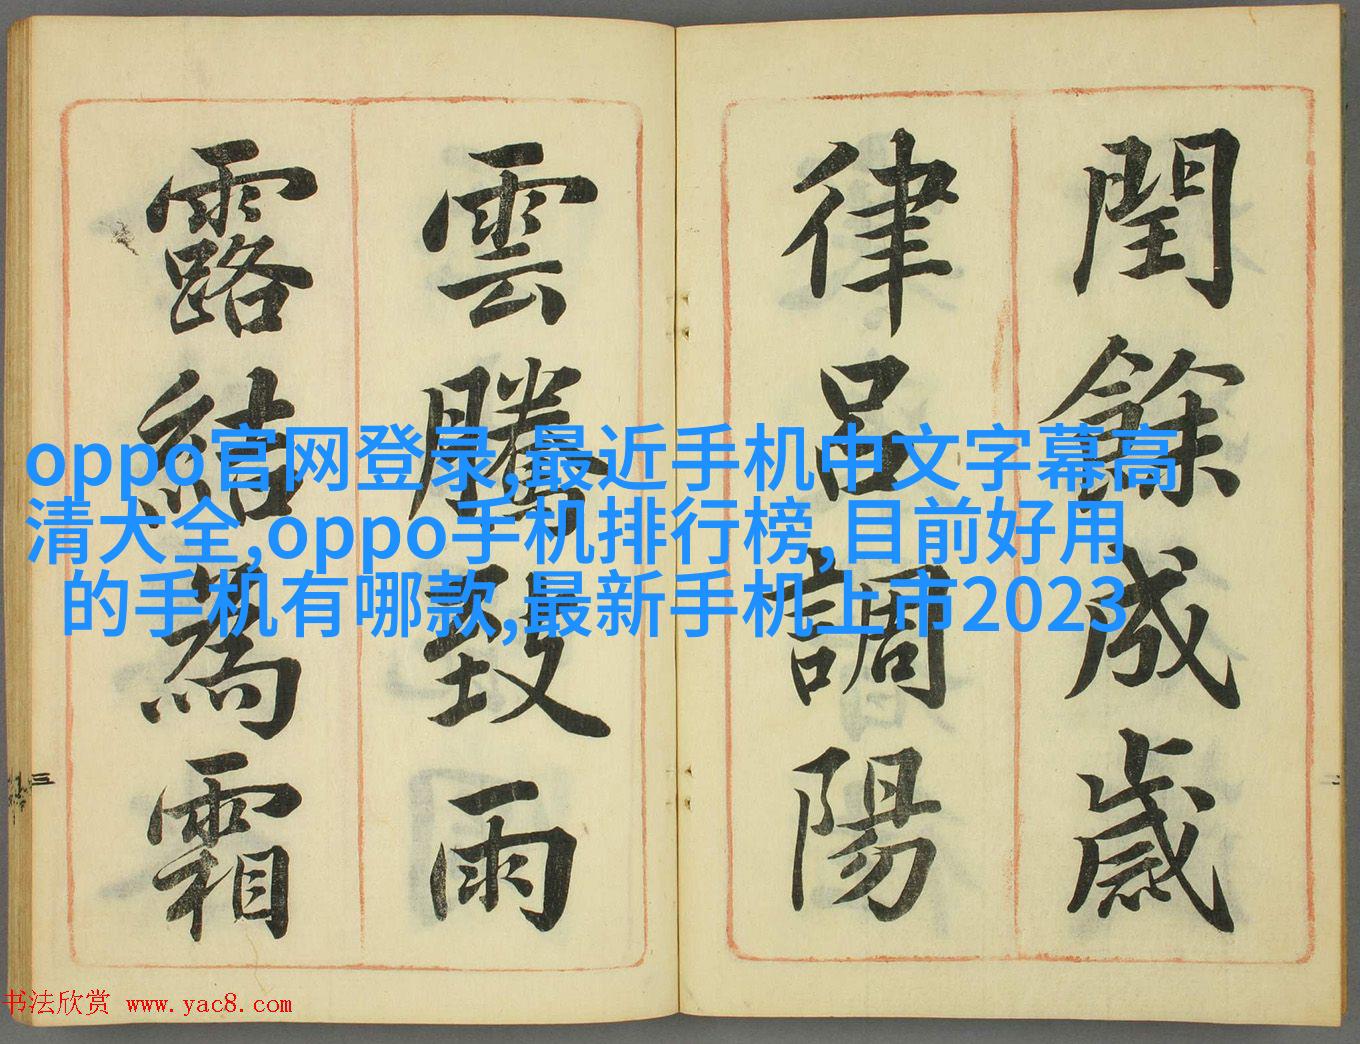 閏餘成歲
律呂調陽
雲騰致雨
露結為霜
oppo官网登录,最近手机中文字幕高
清大全,oppo手机排行榜,目前好用
的手机有哪款,最新手机上市2023
三
二
书法欣赏 www.yac8.com